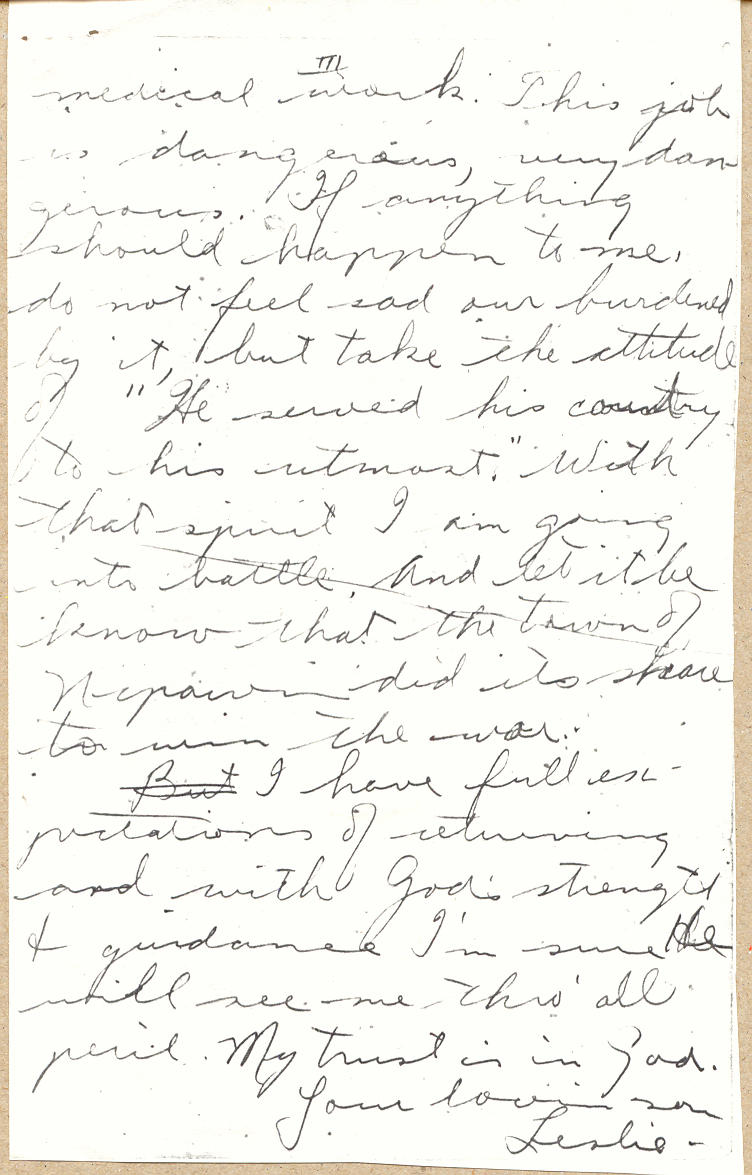 III
medical work. This job
is dangerous, very dan-
gerous. If anything
should happen to me,
do not feel sad our burdened
by it, but take the attitude
of "He served his country
to his utmost." With
that spirit I am going
into battle. And let it be
know that the town of
Nipawin did its share
to win the war.
But I have full ex-
pectations of returning
and with God's strength
& guidance I'm sure He
will see me thro' all
peril. My trust is in God.
Your lovin son
Leslie-